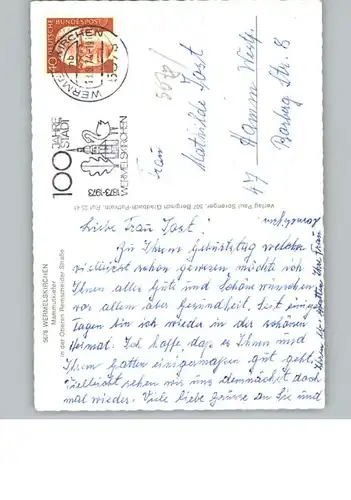 DEUTSCHE BUNDESPOST
40
WERMELSKIRCHEN
5678
100 JAHRE STADT
1873-1973
WERMELSKIRCHEN
Frau
Mathilde Jost
47 Hamm Westf.
Str. 8
Verlag Paul Sprenger, 507 Bergisch Gladbach
5678 WERMELSKIRCHEN
Mammutkiefer
in der Oberen Remscheider Straße
Liebe Frau Jost!
Zu Ihrem Geburtstag welcher
vielleicht schon gewesen möchte ich
Ihnen alles Gute und Schöne wünschen
vor allem aber Gesundheit. Seit einigen
Tagen bin ich wieder in der schönen
Heimat. Ich hoffe daß es Ihnen und
Ihrem Gatten einigermaßen gut geht.
Vielleicht sehen wir uns demnächst doch
mal wieder. Viele liebe Grüsse an Sie und
Ihren lb. Gatten Ihre Frau